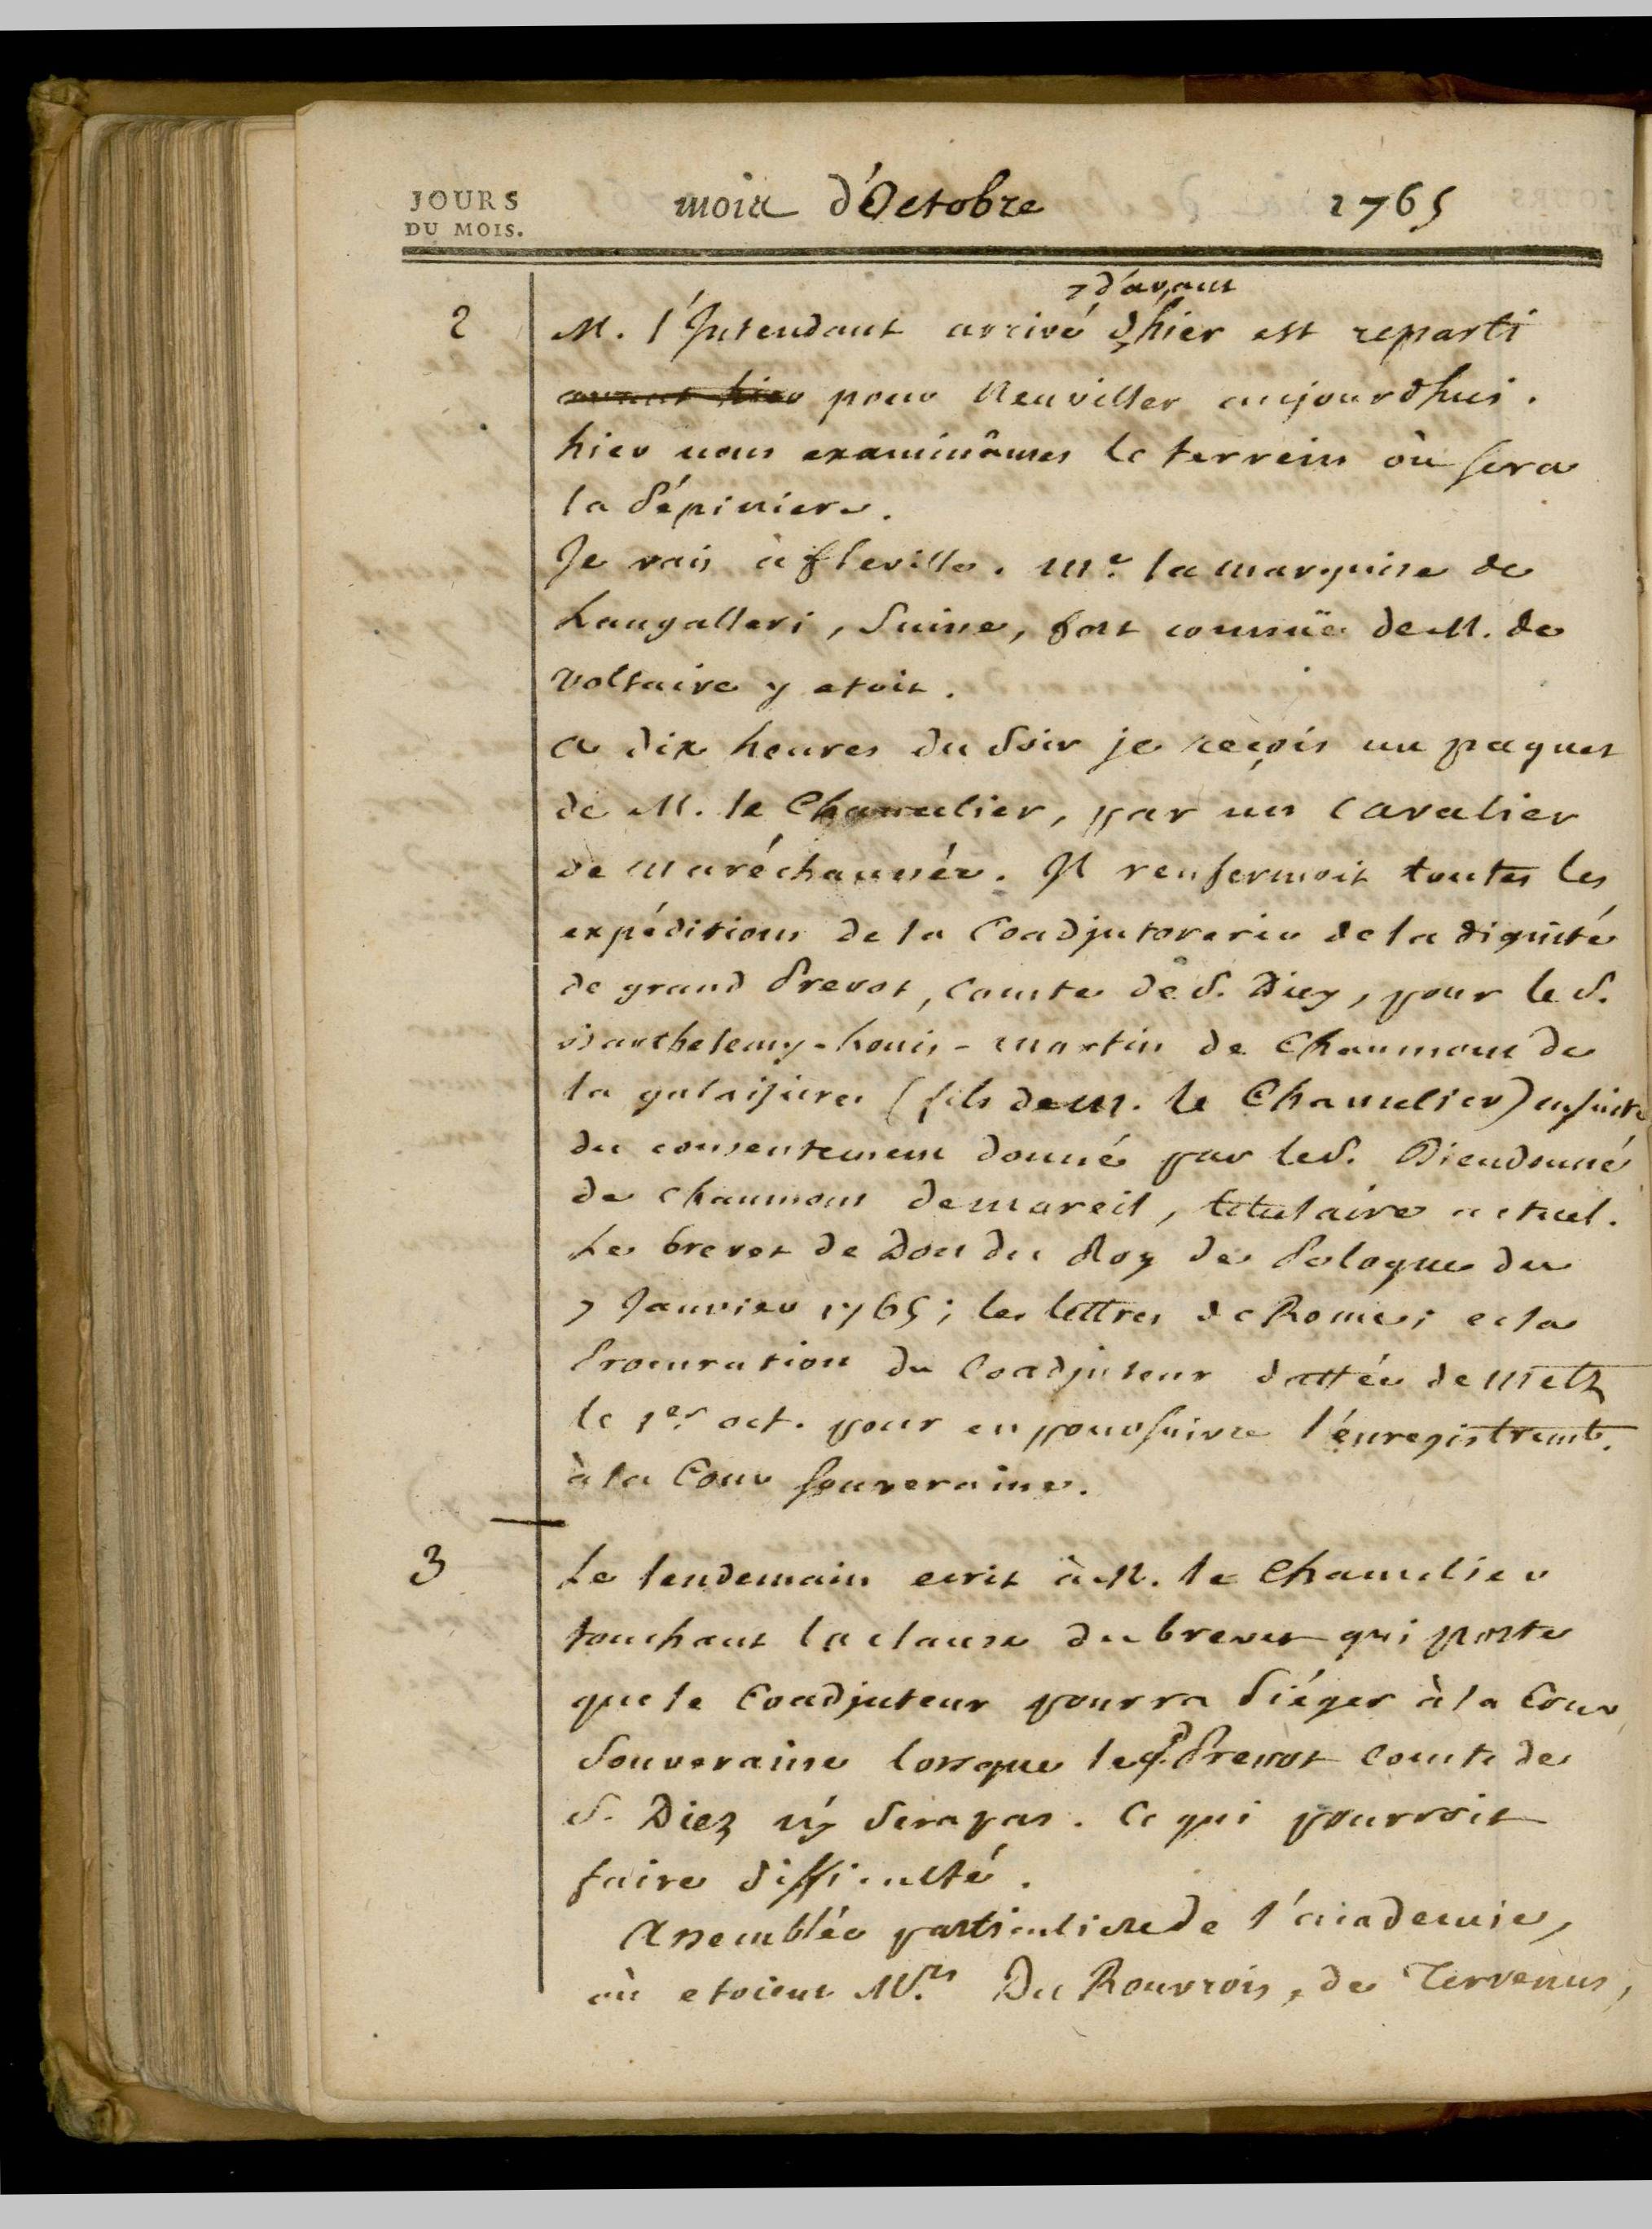 JOURS
DU MOIS.
mois d'Octobre 1765
d'avant
2 M. l'Intendant arrivé d'hier est reparti
avant hier pour Neuviller aujourdhui.
hier nous examinâmes le terrein où sera
la Pépiniere.
Je vais à fleville. Me. la marquise de
Langalleri, Suisse, fort connuë de M. de
Voltaire y etoit.
A dix heures du Soir je reçois un paquet
de M. le Chancelier, par un Cavalier
de Maréchaussée. Il renfermoit toutes les
expéditions de la Coadjutorerie de la dignité
de grand Prevot, Comte de S. Diey, pour le S.
Barthelemy-Louis-Martin de Chaumont de
la galaisiere (fils de M. le Chancelier) ensuite
du consentement donné par le S. Dieudonné
de Chaumont de Mareil, titulaire actuel.
Le brevet de Don du Roy de Pologne du
7 Janvier 1765; les lettres de Rome; et la
Procuration du Coadjuteur dattée de Metz
le 1er. oct. pour en poursuivre l'énregistremt.
à la Cour Souveraine.
3 Le lendemain ecrit à M. le Chancelier
touchant la clause du brevet qui porte
que le Coadjuteur pourra Siéger à la Cour
Souveraine lorsque le gd. Prevot Comte de
S. Diez n'y Sera pas. Ce qui pourroit
faire difficulté.
Assemblée particuliere de l'academie,
où etoient Mrs. Du Rouvrois, de Tervenus,